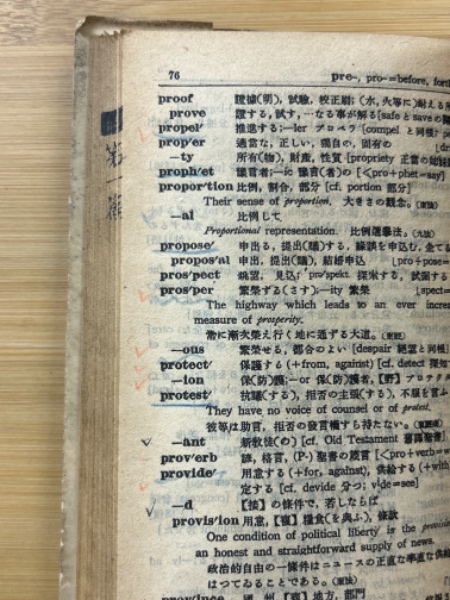 76 pre-, pro-=before, forth
proof 證據(明), 試驗, 校正刷; (水, 火等に)耐える
prove 證する, 試す, …なる事が解る[safe と save の
propel′ 推進する;—ler プロペラ [compel と同根
prop′er 適當な, 正しい, 獨自の, 固有の
—ty 所有(物), 財產, 性質 [propriety 正當の
proph′et 豫言者;—ic 豫言(者)の [<pro+phet=say]
propor′tion 比例, 割合, 部分 [cf. portion 部分]
Their sense of proportion. 大きさの觀念。
—al 比例して
Proportional representation. 比例選擧法。
propose′ 申出る, 提出(議)する, 緣談を申込む, 企てる
propos′al 申出, 提出(議), 結婚申込 [pro+pose=
pros′pect 眺望, 見込; pro′spekt 探索する, 試掘する
pros′per 繁榮する(さす);—ity 繁榮 [spect=
The highway which leads to an ever increa
measure of prosperity.
常に漸次榮え行く地に通ずる大道。
—ous 繁榮せる, 都合のよい [despair 絕望と同根]
protect′ 保護する (+from, against) [cf. detect 探知
—ion 保(防)護;—or 保(防)護者,【野】プロテクタ
protest′ 抗議(する), 拒否の主張(する), 不服を言ふ
They have no voice of counsel or of protest.
彼等は助言, 拒否の發言權すら持たない。
—ant 新敎徒(の) [cf. Old Testament 舊譯聖書]
prov′erb 諺, 格言, (P-) 聖書の箴言 [<pro+verb=w
provide′ 用意する (+for, against), 供給する (+with)
定する [cf. devide 分つ; vide=see]
—d 【接】の條件で, 若しならば
provis′ion 用意,【複】糧食(を與ふ), 條款
One condition of political liberty is the provision
an honest and straightforward supply of news.
政治的自由の一條件はニュースの正直な率直な供給
はつてゐることである。
province 國, 州,【複】地方, 部門